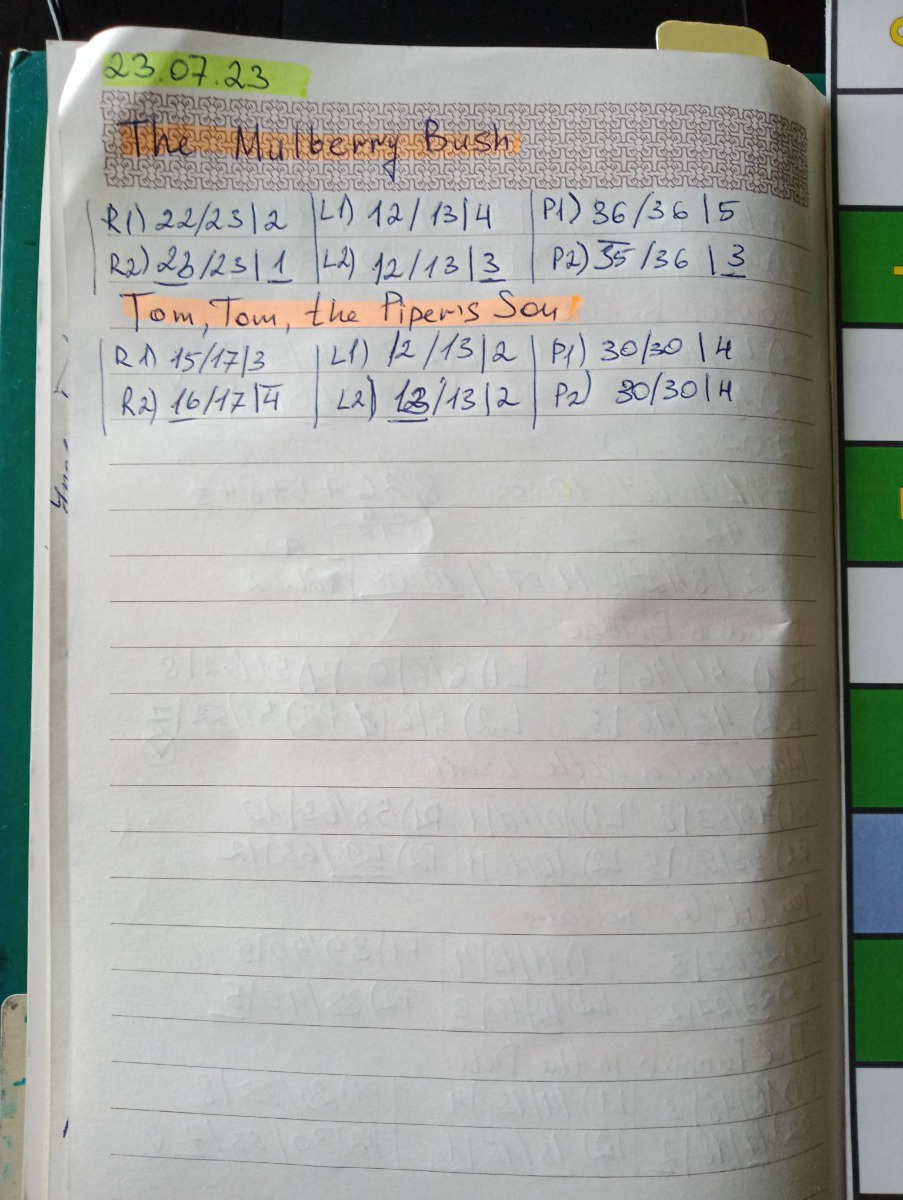 23.07.23
The Mulberry Bush
R1) 22/23|2 | L1) 12/13|4 | P1) 36/36|5
R2) 23/23|1 | L2) 12/13|3 | P2) 35/36|3
Tom, Tom, the Piper's Son
R1) 15/17|3 | L1) 12/13|2 | P1) 30/30|4
R2) 16/17|4 | L2) 13/13|2 | P2) 30/30|4